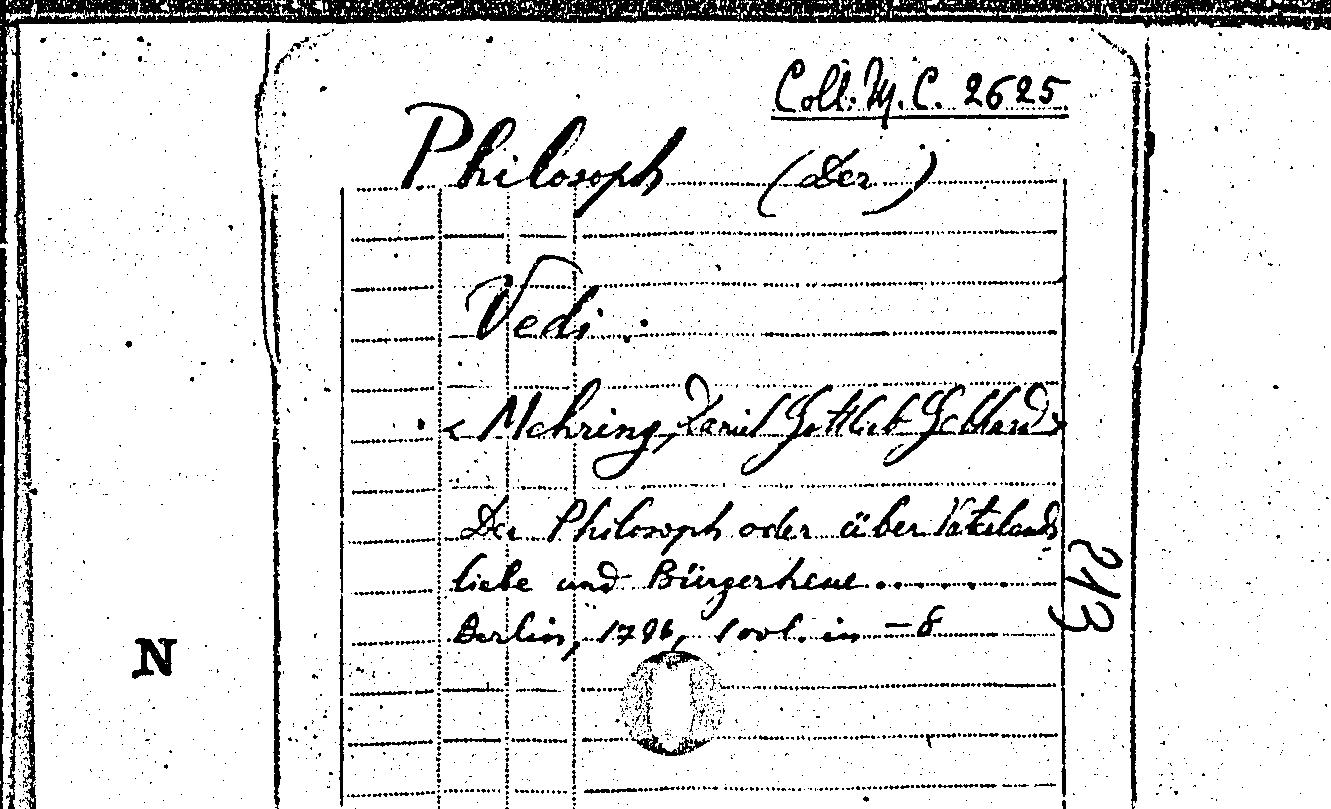 Coll. M. C. 2625
Philosoph (Der)
Vedi:
<Mehring, Daniel Gottlieb Gebhard>
Der Philosoph oder über Vaterlands
liebe und Bürgertreue.......
Berlin, 1796, 1 vol. in -8
213
N